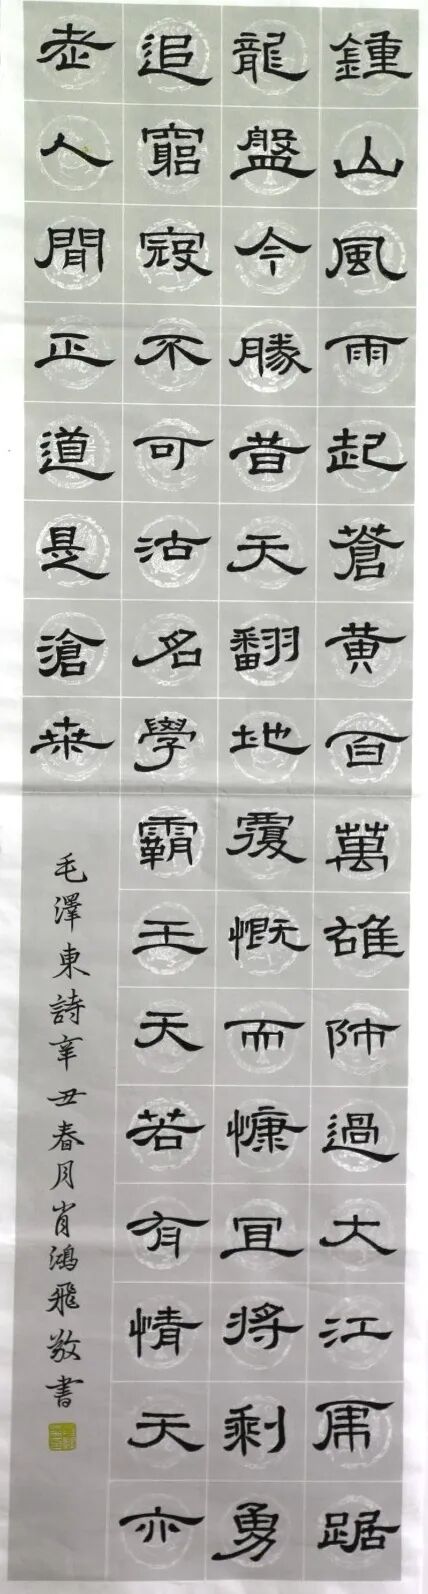 鍾山風雨起蒼黃百萬雄師過大江虎踞
龍盤今勝昔天翻地覆慨而慷宜將剩勇
追窮寇不可沽名學霸王天若有情天亦
老人間正道是滄桒
毛澤東詩辛丑春月肖鴻飛敬書